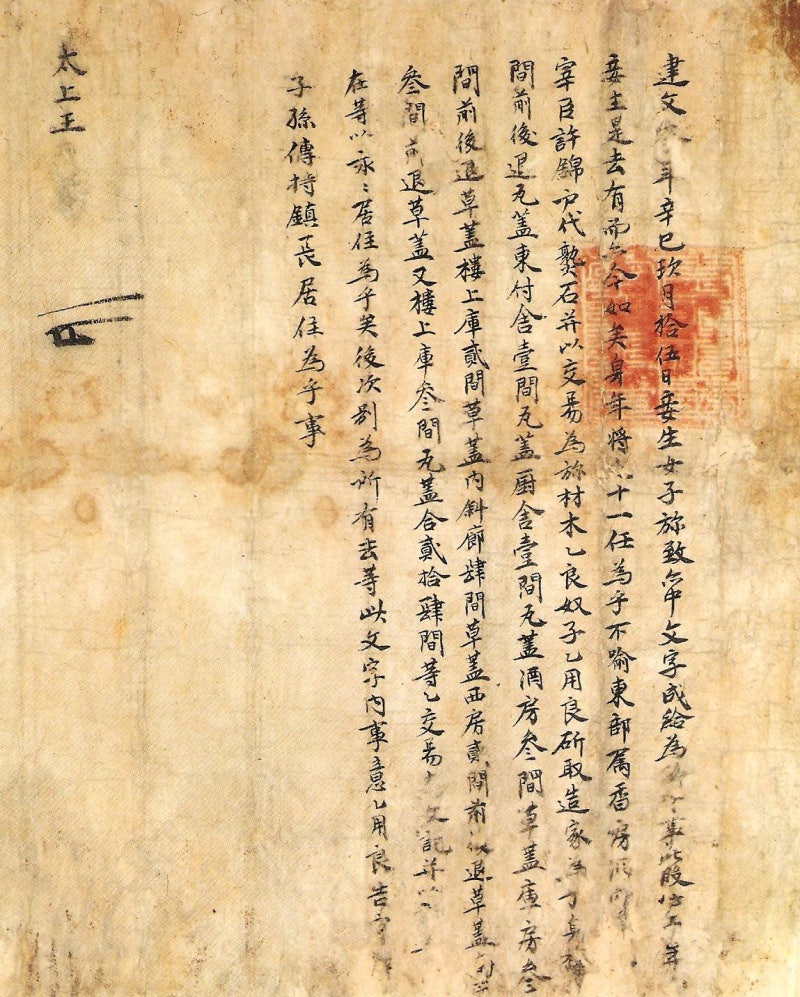 建文年辛巳玖月拾伍日妾生女子旀致亦中文字成給為事叱段年
妾生是去有而亦今如矣身年將十一任為乎不喻東部屬香房洞
宰臣許錦戶代㙯石幷以交易為旀材木乙良奴子乙用良斫取造家
間前後退瓦蓋東付舍壹間瓦蓋廚舍壹間瓦蓋酒房叄間草蓋庫房叄
間前後退草蓋樓上庫貳間草蓋內斜廊肆間草蓋西房貳間前後退草蓋
叄間前退草蓋又樓上庫叄間瓦蓋合貳拾肆間等乙交易文記幷以
在等以永〻居住為乎矣後次別為所有去等此文字內事意乙用良告
子孫傳持鎮長居住為乎事
太上王